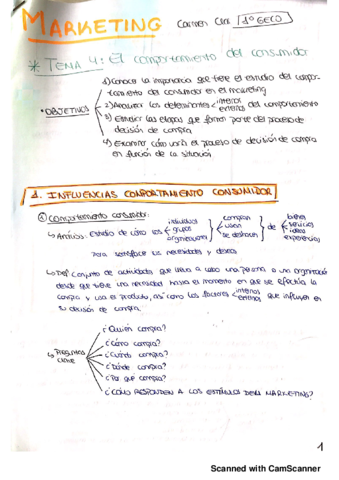 MARKETING
1º GECO
* TEMA 4: El comportamiento del consumidor
1) Conocer la importancia que tiene el estudio del compor-
tamiento del consumidor en el marketing
• OBJETIVOS
2) los determinantes internos externos del comportamiento
3) Estudiar las etapas que forman parte del proceso de
decisión de compra
4) Examinar cómo varía el proceso de decisión de compra
en función de la situación
1. INFLUENCIAS COMPORTAMIENTO CONSUMIDOR
Comportamiento consumidor:
↳ Análisis: Estudio de cómo los individuos grupos organizaciones compran usan se deshacen de bienes servicios ideas experiencias
para satisfacer sus necesidades y deseos
↳ Def: Conjunto de actividades que lleva a cabo una persona o una organización
desde que tiene una necesidad hasta el momento en que se efectúa la
compra y usa el producto, así como los factores internos externos que influyen en
su decisión de compra.
¿Quién compra?
¿Cómo compra?
¿Cuándo compra?
↳ PREGUNTAS CLAVE
¿Dónde compra?
¿Por qué compra?
¿CÓMO RESPONDEN A LOS ESTÍMULOS DEL MARKETING?
1
Scanned with CamScanner